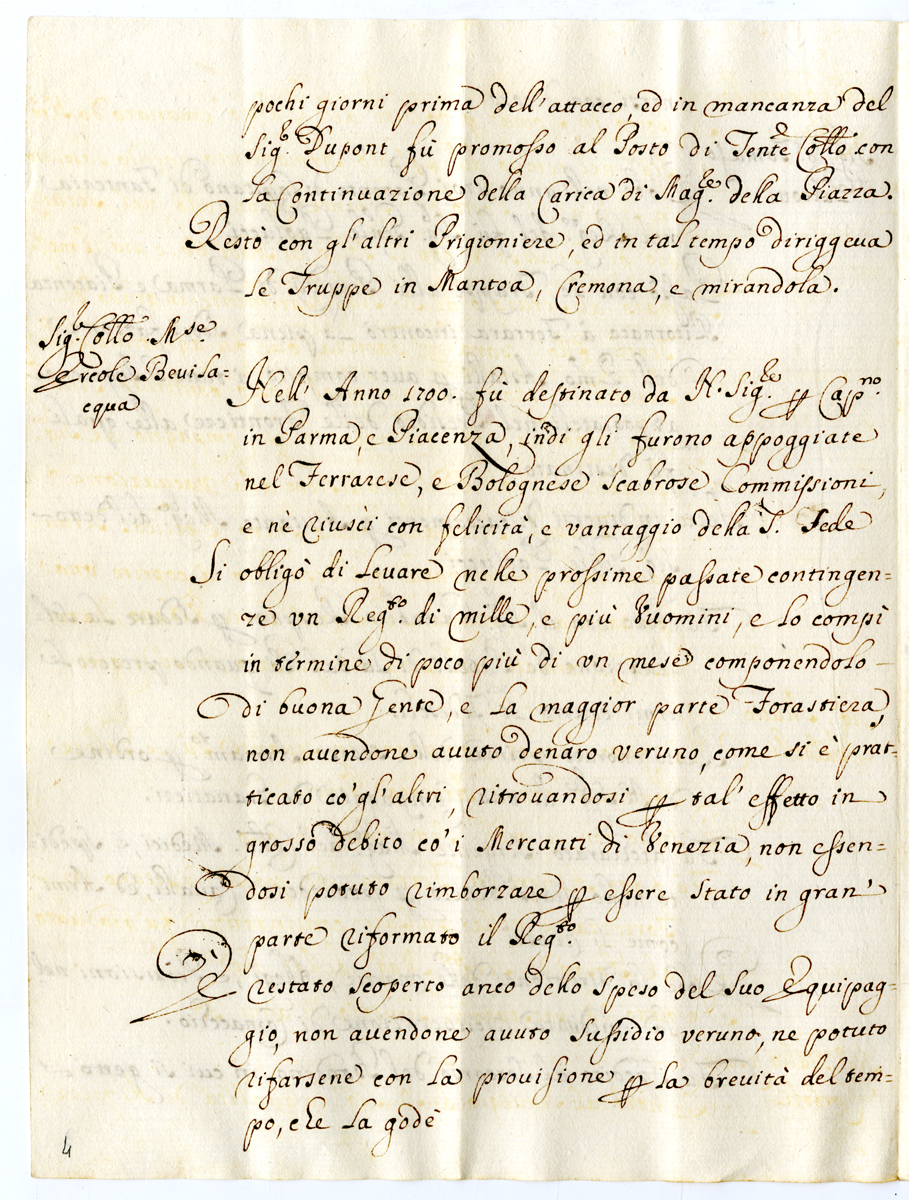 pochi giorni prima dell'attacco, ed in mancanza del
Sig.re Dupont fù promosso al Posto di Tente Collo con
la Continuazione della Carica di Mag.re della Piazza.
Restò con gl'altri Prigioniere, ed in tal tempo diriggeua
le Truppe in Mantoa, Cremona, e mirandola.
Sig.r Collo Mse.
Ercole Beuila=
cqua
Nell' Anno 1700. fù destinato da N. Sig.re per Cap.no
in Parma, e Piacenza, indi gli furono appoggiate
nel Ferrarese, e Bolognese scabrose Commissioni,
e nè riuscì con felicità, e vantaggio della S. Sede
Si obligò di Leuare nelle prossime passate contingen=
ze vn Reg.to di mille, e più Vuomini, e lo compì
in termine di poco più di vn mese componendolo
di buona Gente, e la maggior parte Forastiera,
non auendone auuto denaro veruno, come si è prat=
ticato co' gl'altri, ritrouandosi per tal' effetto in
grosso debito co' i Mercanti di Venezia, non essen=
dosi potuto rimborzare per essere stato in gran'
parte riformato il Reg.to
E restato scoperto anco dello speso del suo Equipag=
gio, non auendone auuto sussidio veruno, ne potuto
rifarsene con la prouisione per la breuità del tem=
po, che la godè
4